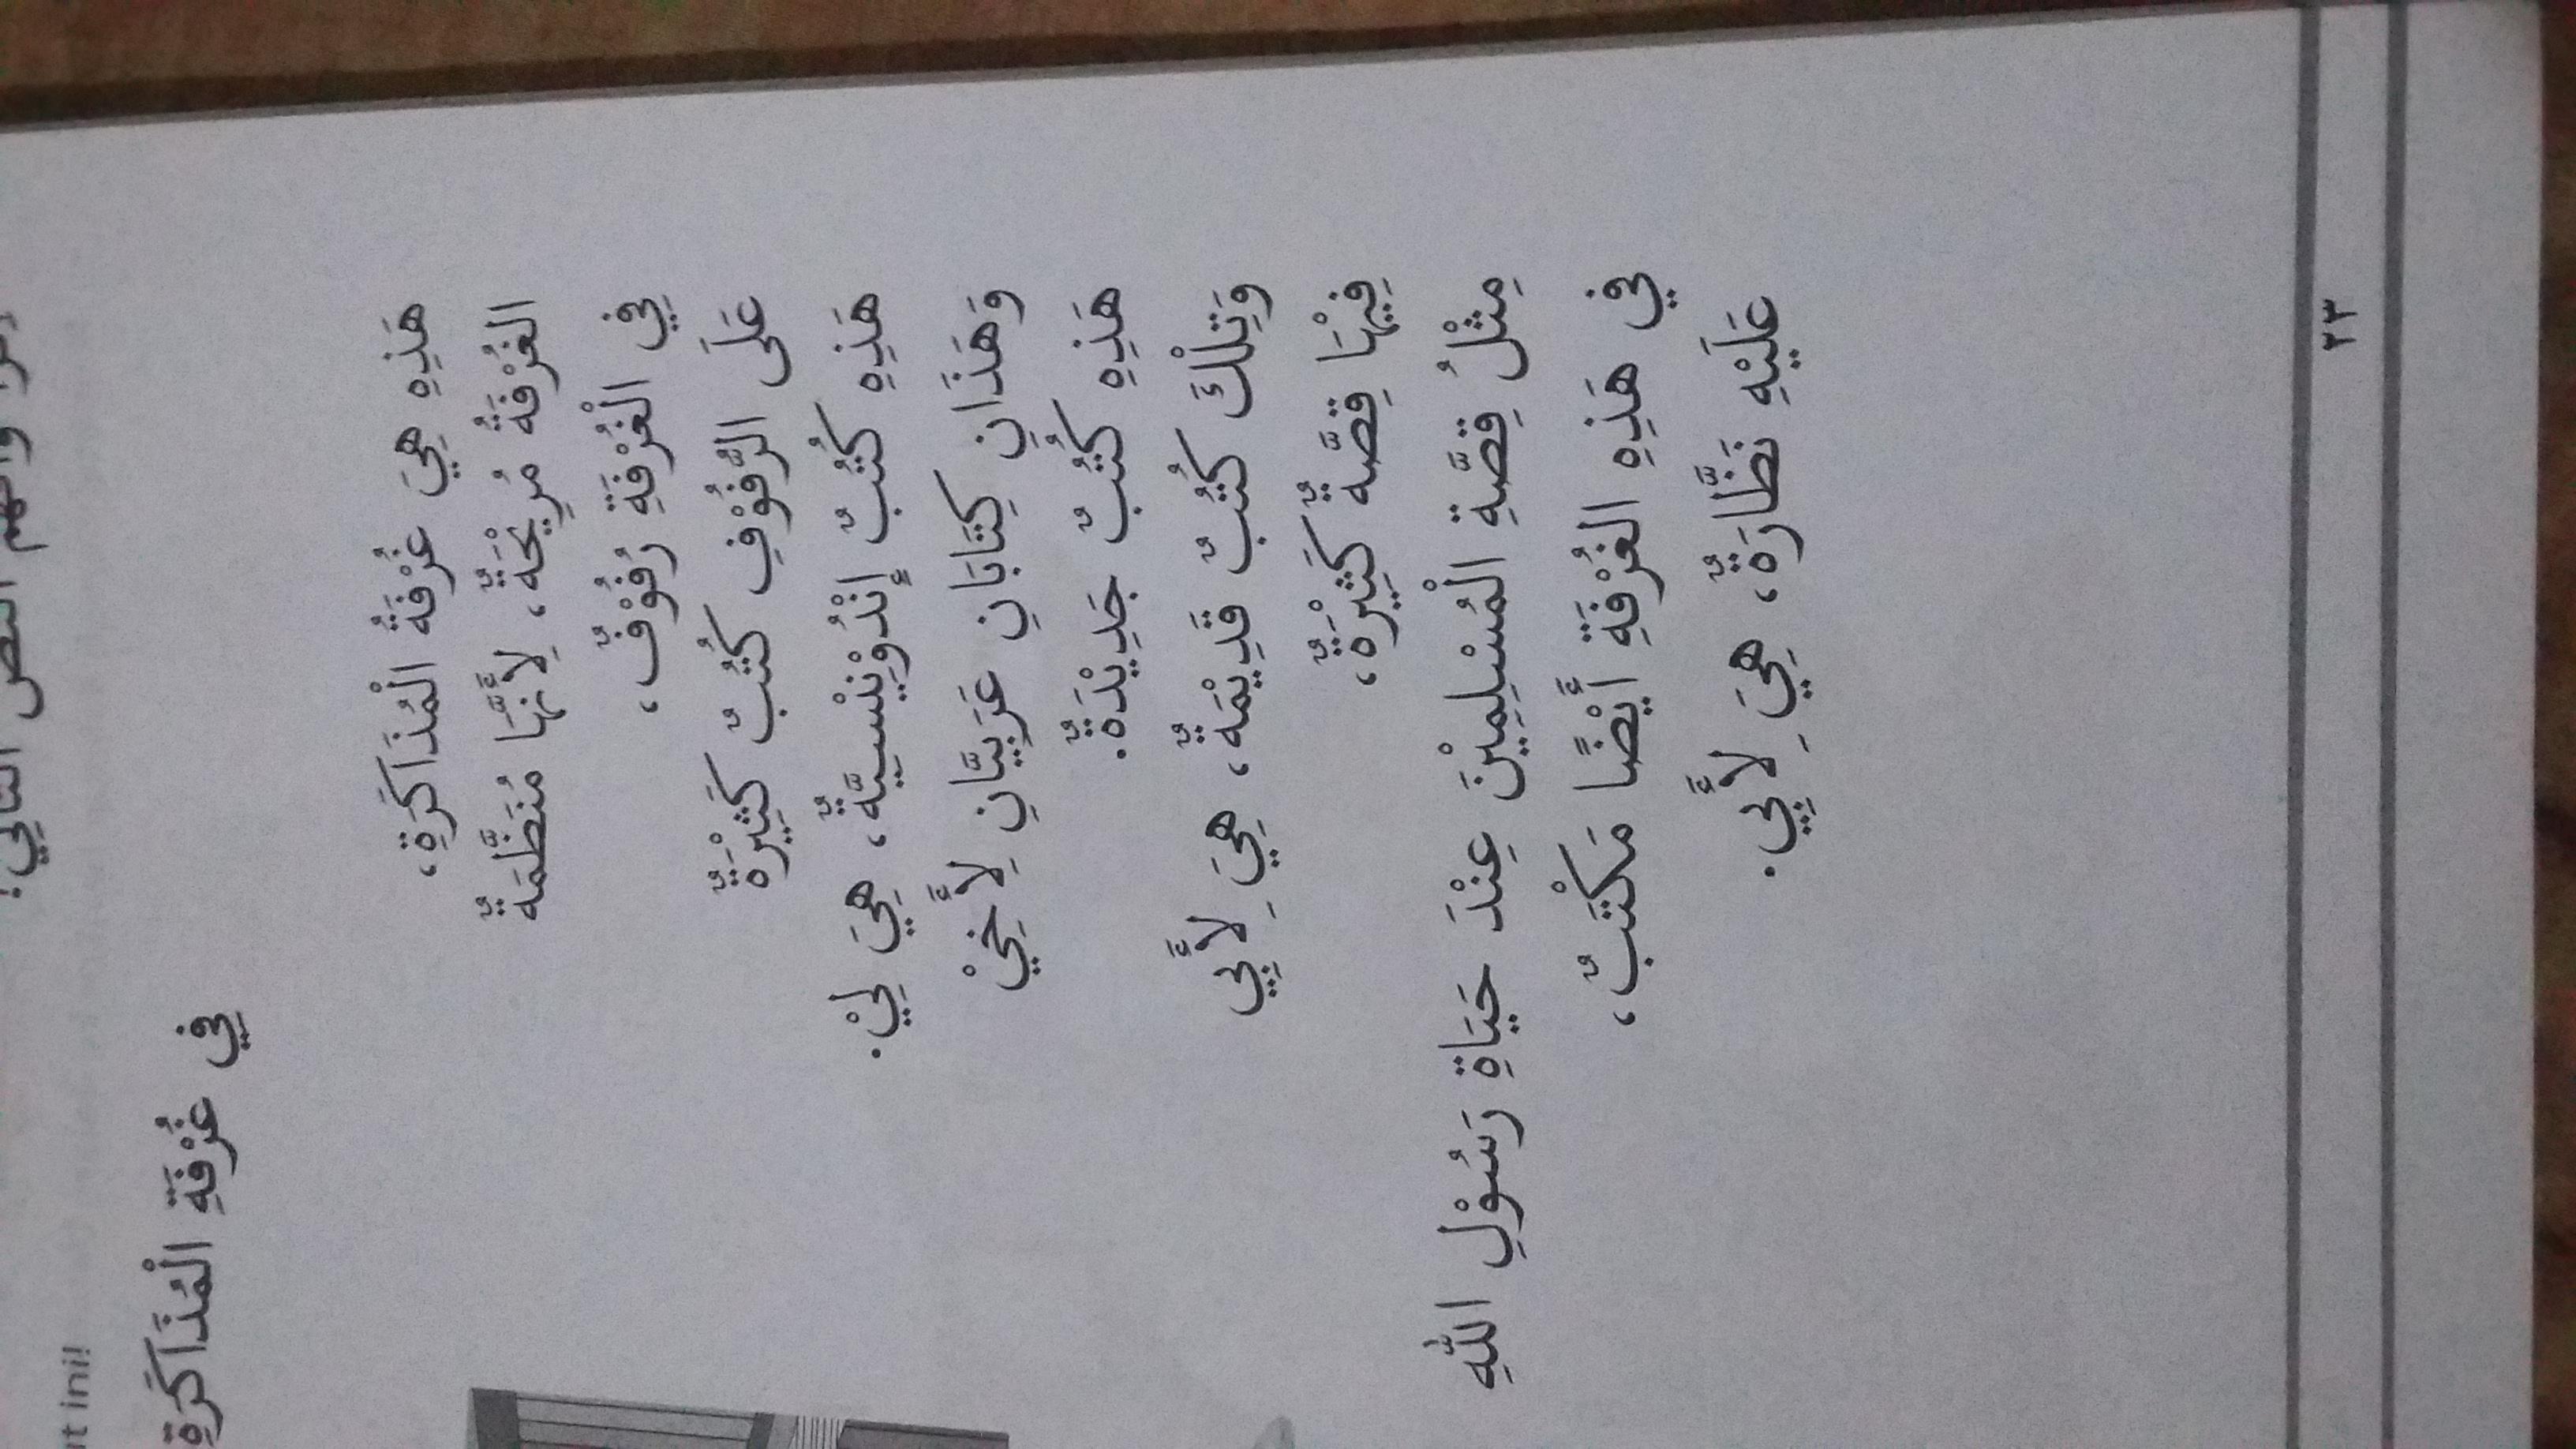 وافهم النص التالي!
ut ini!
فِي غُرْفَةِ الْمُذَاكَرَةِ
هَذِهِ هِيَ غُرْفَةُ الْمُذَاكَرَةِ،
الغُرْفَةُ مُرِيْحَةٌ، لِأَنَّهَا مُنَظَّمَةٌ
فِي الْغُرْفَةِ رُفُوْفٌ،
عَلَى الرُّفُوْفِ كُتُبٌ كَثِيْرَةٌ
هَذِهِ كُتُبٌ إِنْدُوْنِيْسِيَّةٌ، هِيَ لِيْ.
وَهَذَانِ كِتَابَانِ عَرَبِيَّانِ لِأَخِيْ
هَذِهِ كُتُبٌ جَدِيْدَةٌ.
وَتِلْكَ كُتُبٌ قَدِيْمَةٌ، هِيَ لِأَبِي
فِيْهَا قِصَّةٌ كَثِيْرَةٌ،
مِثْلُ قِصَّةِ الْمُسْلِمِيْنَ عِنْدَ حَيَاةِ رَسُوْلِ اللهِ
فِي هَذِهِ الغُرْفَةِ أَيْضًا مَكْتَبٌ،
عَلَيْهِ نَظَّارَةٌ، هِيَ لِأَبِي.
٢٣